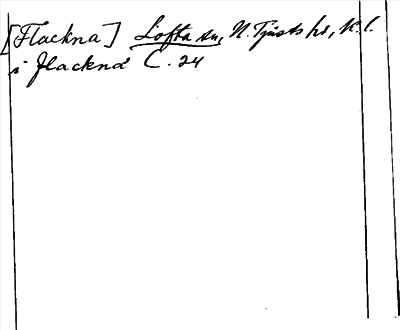 [Flackna] Lofta sn, N. Tjusts hd, K. l.
i Flackna C. 24